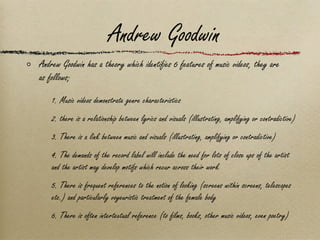 Andrew Goodwin
Andrew Goodwin has a theory which identifies 6 features of music videos, they are
as follows;
1. Music videos demonstrate genre characteristics
2. there is a relationship between lyrics and visuals (illustrating, amplifying or contradictive)
3. There is a link between music and visuals (illustrating, amplified or contradictive)
4. The demands of the record label will include the need for lots of close ups of the artist
and the artist may develop motifs which recur across their work.
5. There is frequent references to the notion of looking (screens within screens, telescopes
etc.) and particularly voyeuristic treatment of the female body
6. There is often intertextual reference (to films, books, other music videos, even poetry)